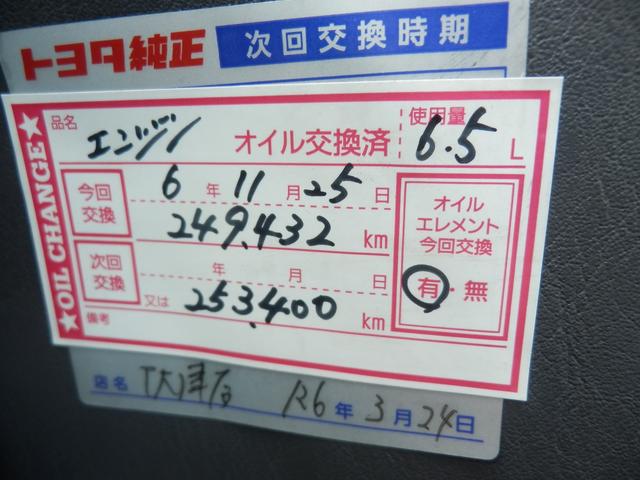 トヨタ純正 次回交換時期
★OIL CHANGE★
品名 エンジン オイル交換済 使用量 6.5 L
今回交換 6 年 11 月 25 日
249,432 km
オイル
エレメント
今回交換
有・無
次回交換 年 月 日
又は 253,400 km
備考
店名 大津店 R6年 3月 24日